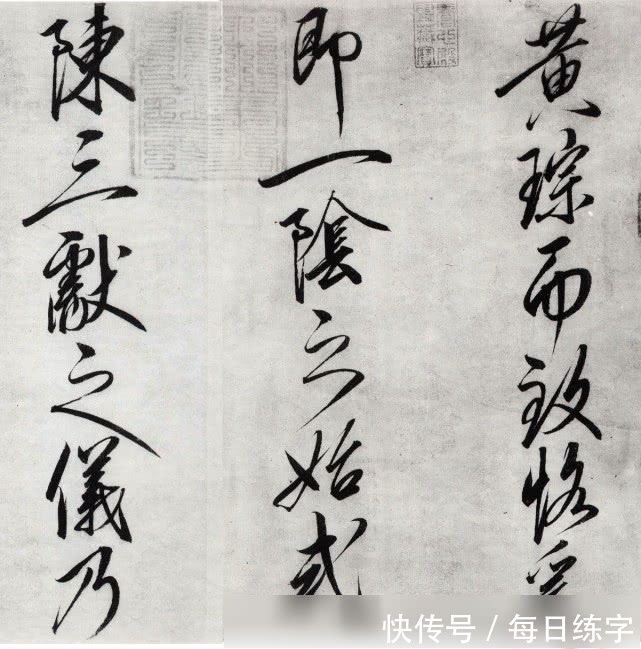 黄琮而致恪爰
即一陰之始式
陳三獻之儀乃
快传号 / 每日练字